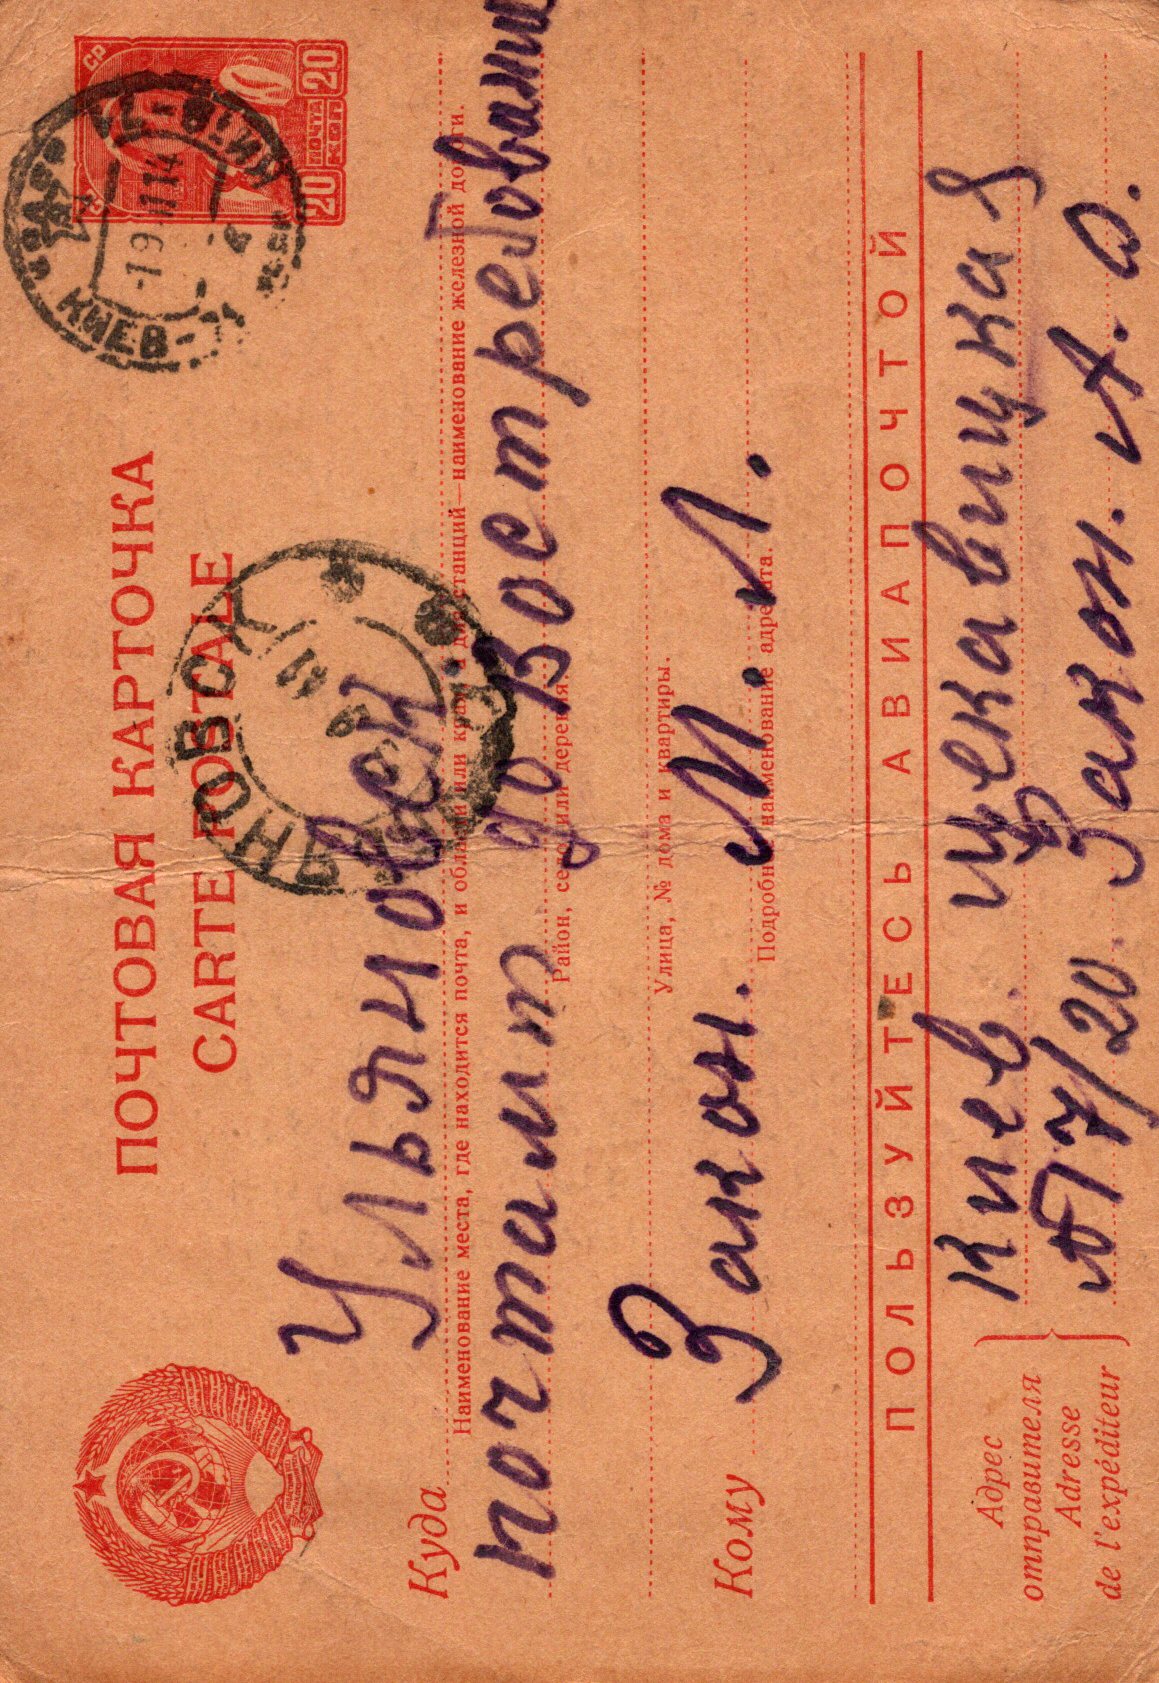 ПОЧТОВАЯ КАРТОЧКА
CARTE POSTALE
СР
20 ПОЧТА 20
КОП
КИЕВ
УЛЬЯНОВСК
Куда Ульяновск
Наименование места, где находится почта, и области или края, а для станций—наименование железной дороги.
почтамт до Востребовании
Район, село или деревня.
Улица, № дома и квартиры.
Кому Закон. М. Л.
Подробное наименование адресата.
ПОЛЬЗУЙТЕСЬ АВИАПОЧТОЙ
Адрес
отправителя
Adresse
de l'expéditeur
Киев. щекавицкая
№ 7/20 Закон. А. О.